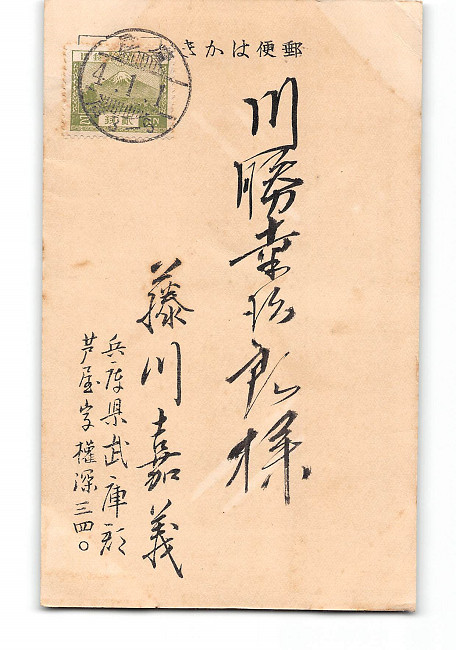 郵便はかき
川勝幸治郎様
藤川嘉義
兵庫県武庫郡
芦屋字權深三四〇
4.1.1